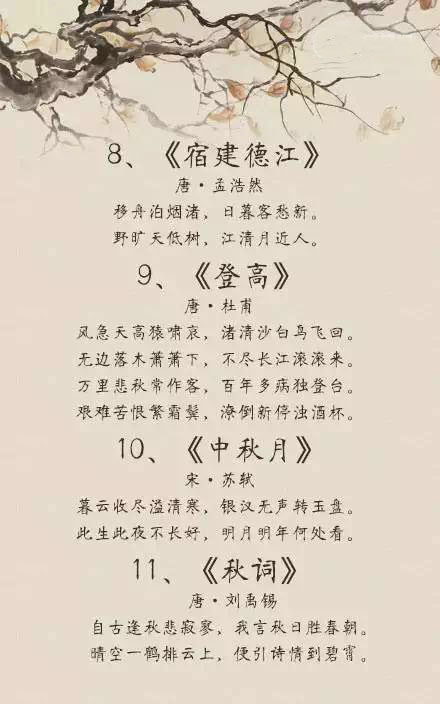 8、《宿建德江》
唐·孟浩然
移舟泊烟渚，日暮客愁新。
野旷天低树，江清月近人。
9、《登高》
唐·杜甫
风急天高猿啸哀，渚清沙白鸟飞回。
无边落木萧萧下，不尽长江滚滚来。
万里悲秋常作客，百年多病独登台。
艰难苦恨繁霜鬓，潦倒新停浊酒杯。
10、《中秋月》
宋·苏轼
暮云收尽溢清寒，银汉无声转玉盘。
此生此夜不长好，明月明年何处看。
11、《秋词》
唐·刘禹锡
自古逢秋悲寂寥，我言秋日胜春朝。
晴空一鹤排云上，便引诗情到碧霄。